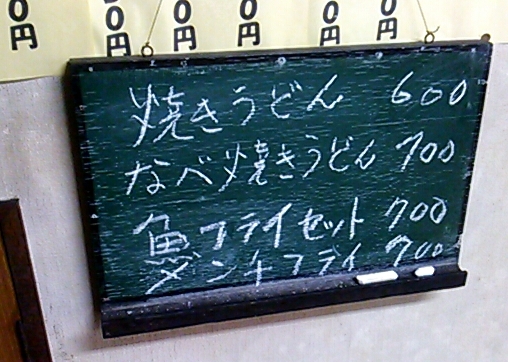 0円
00円
0円
0円
0円
0円
焼きうどん 600
なべ焼きうどん 700
魚フライセット 700
メンチフライ 700